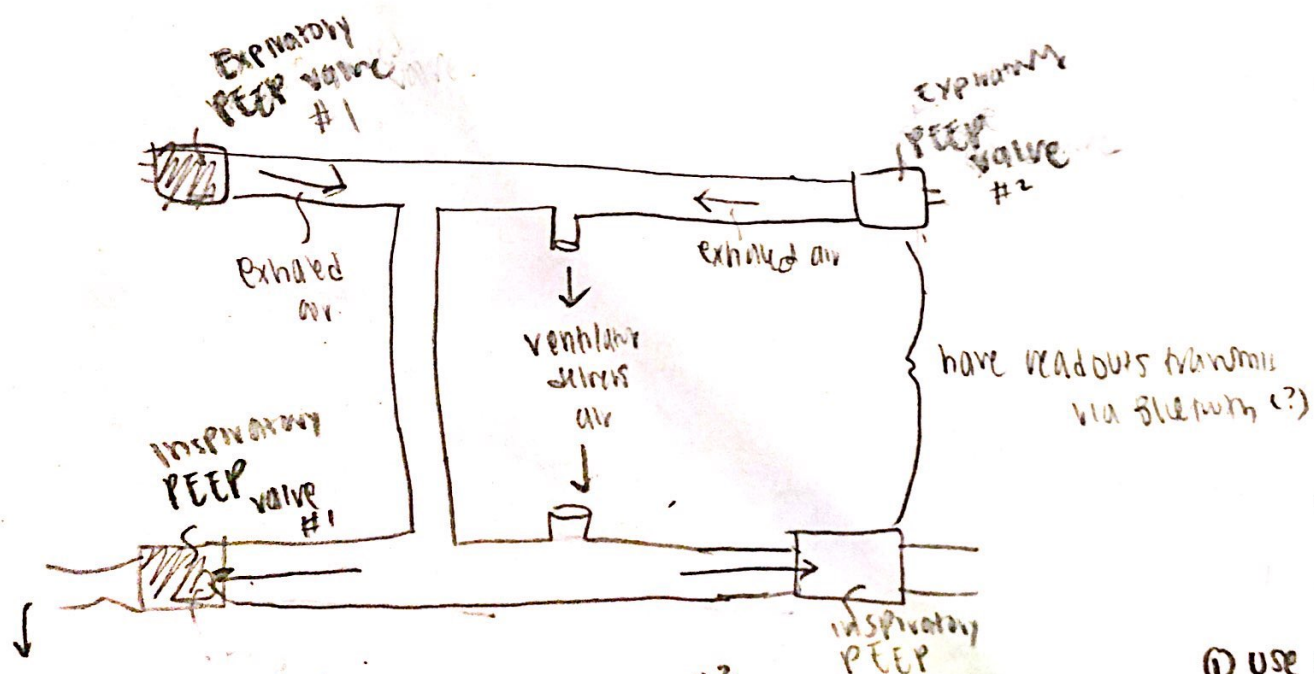 Expiratory
PEEP valve
#1
Expiratory
PEEP
valve
#2
exhaled
air
exhaled air
ventilator
delivers
air
have readouts transmit
via Bluetooth (?)
Inspiratory
PEEP
valve
#1
inspiratory
PEEP
① USE